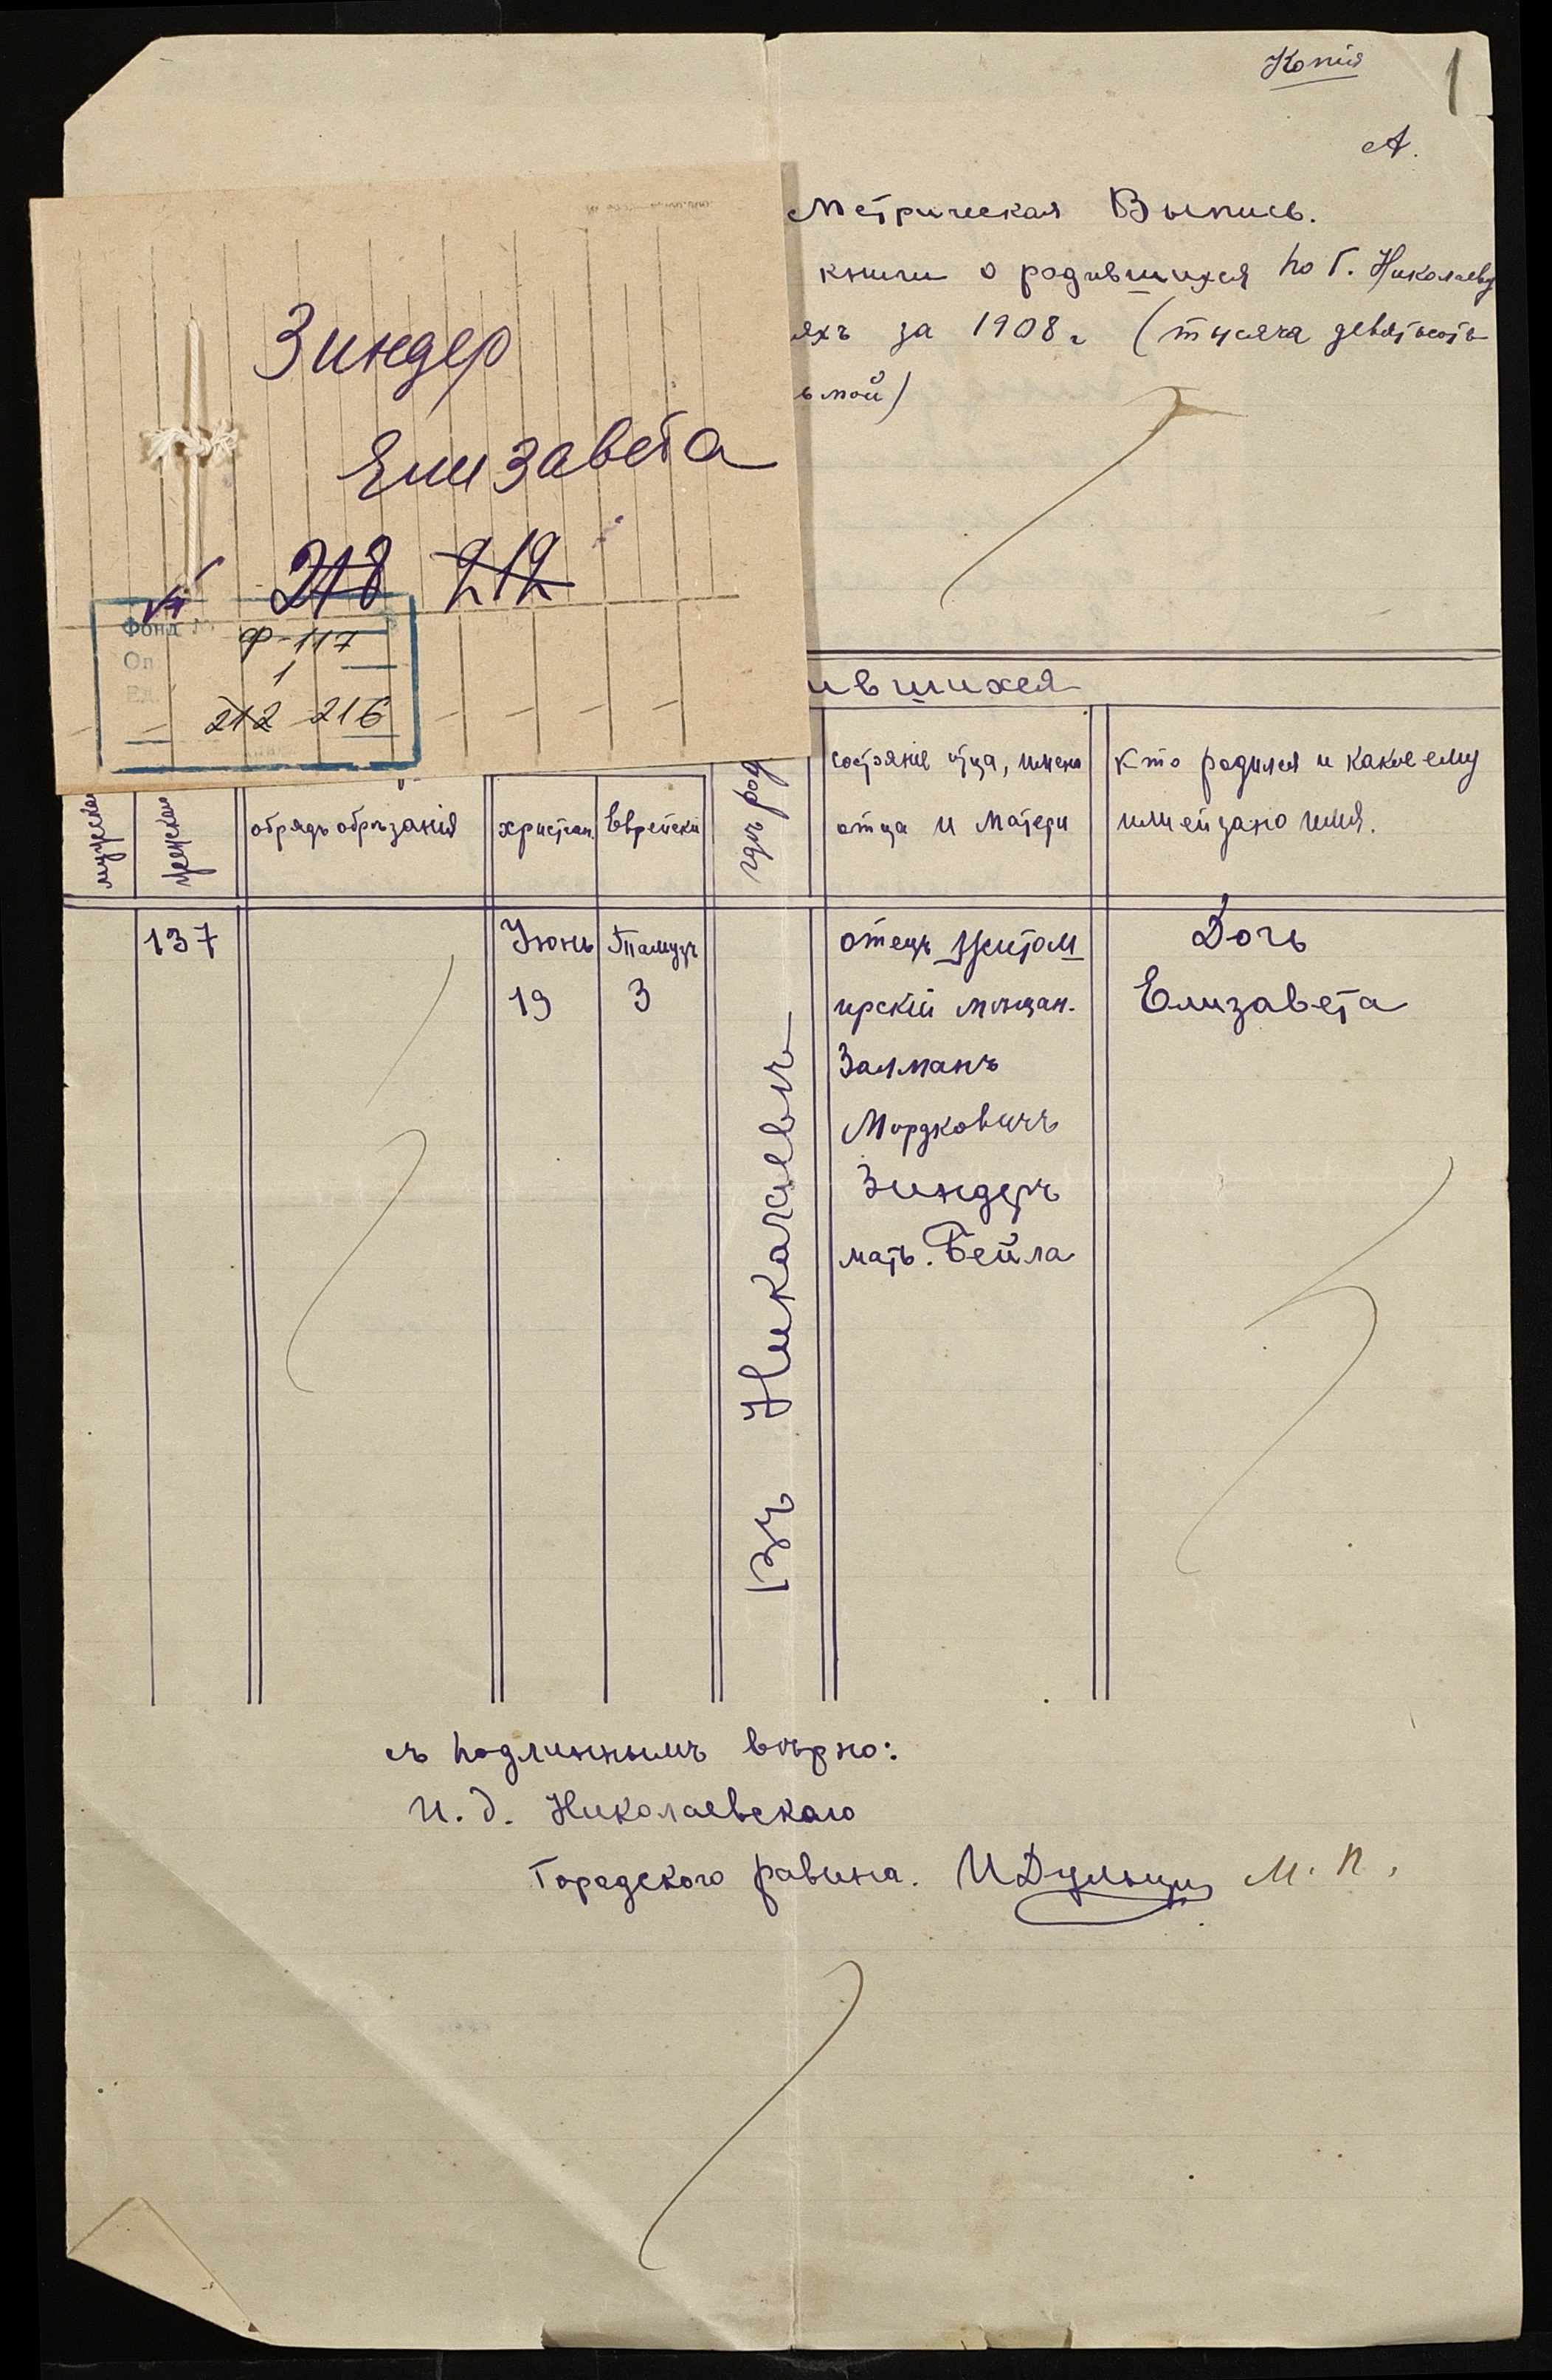 Копія
1
А.
Метрическая Выпись.
книги о родившихся по Г. Николаеву
яхъ за 1908 г (тысяча девятьсотъ
ьмой)
Зиндер
Елизавета
218 212
Фонд № Ф-117
Оп 1
Ед. 212 216
ившихся
мужескаго
женскаго
обрядъ обрѣзанія
христіан.
Еврейскій
гдѣ род
состояніе отца, имена
отца и матери
Кто родился и какое ему
или ей дано имя.
137
Іюнь
19
Тамузъ
3
Въ Николаевѣ
отецъ Житом
ирскій мѣщан.
Залманъ
Мордковичъ
Зиндеръ
мать. Бейла
Дочь
Елизавета
съ подлиннымъ вѣрно:
И. д. Николаевскаго
Городского равина. М. П.